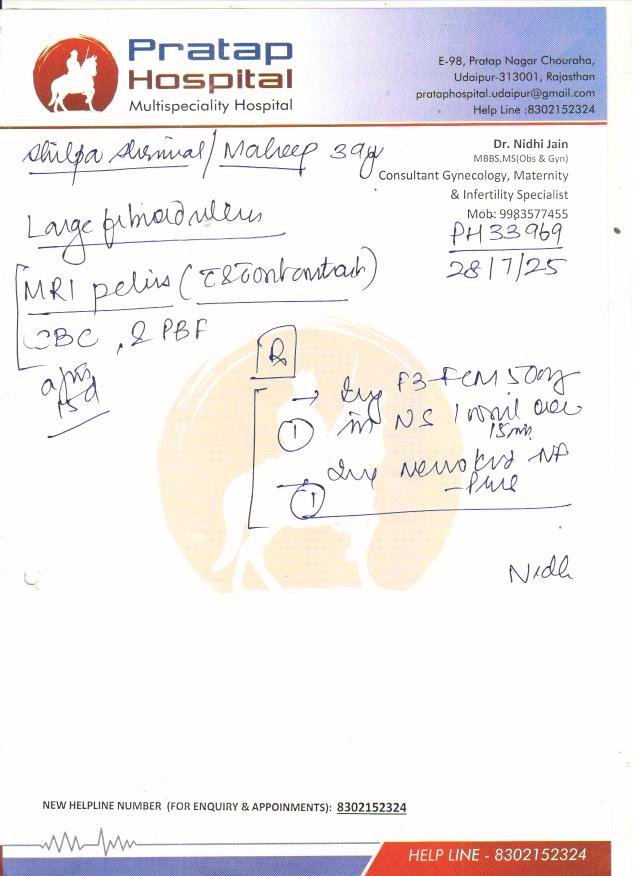 Pratap
Hospital
Multispeciality Hospital
E-98, Pratap Nagar Chouraha,
Udaipur-313001, Rajasthan
prataphospital.udaipur@gmail.com
Help Line :8302152324
Dr. Nidhi Jain
MBBS,MS(Obs & Gyn)
Consultant Gynecology, Maternity
& Infertility Specialist
Mob: 9983577455
PH33969
28/7/25
Shilpa / Maheep 39y
Large fibroid uterus
MRI pelvis (
CBC , & PBF
15d
Rx
→ Inj F3-FCM 500mg
① in NS 100ml over
15min
→ Inj NA
①
Nidh
NEW HELPLINE NUMBER (FOR ENQUIRY & APPOINMENTS): 8302152324
HELP LINE - 8302152324